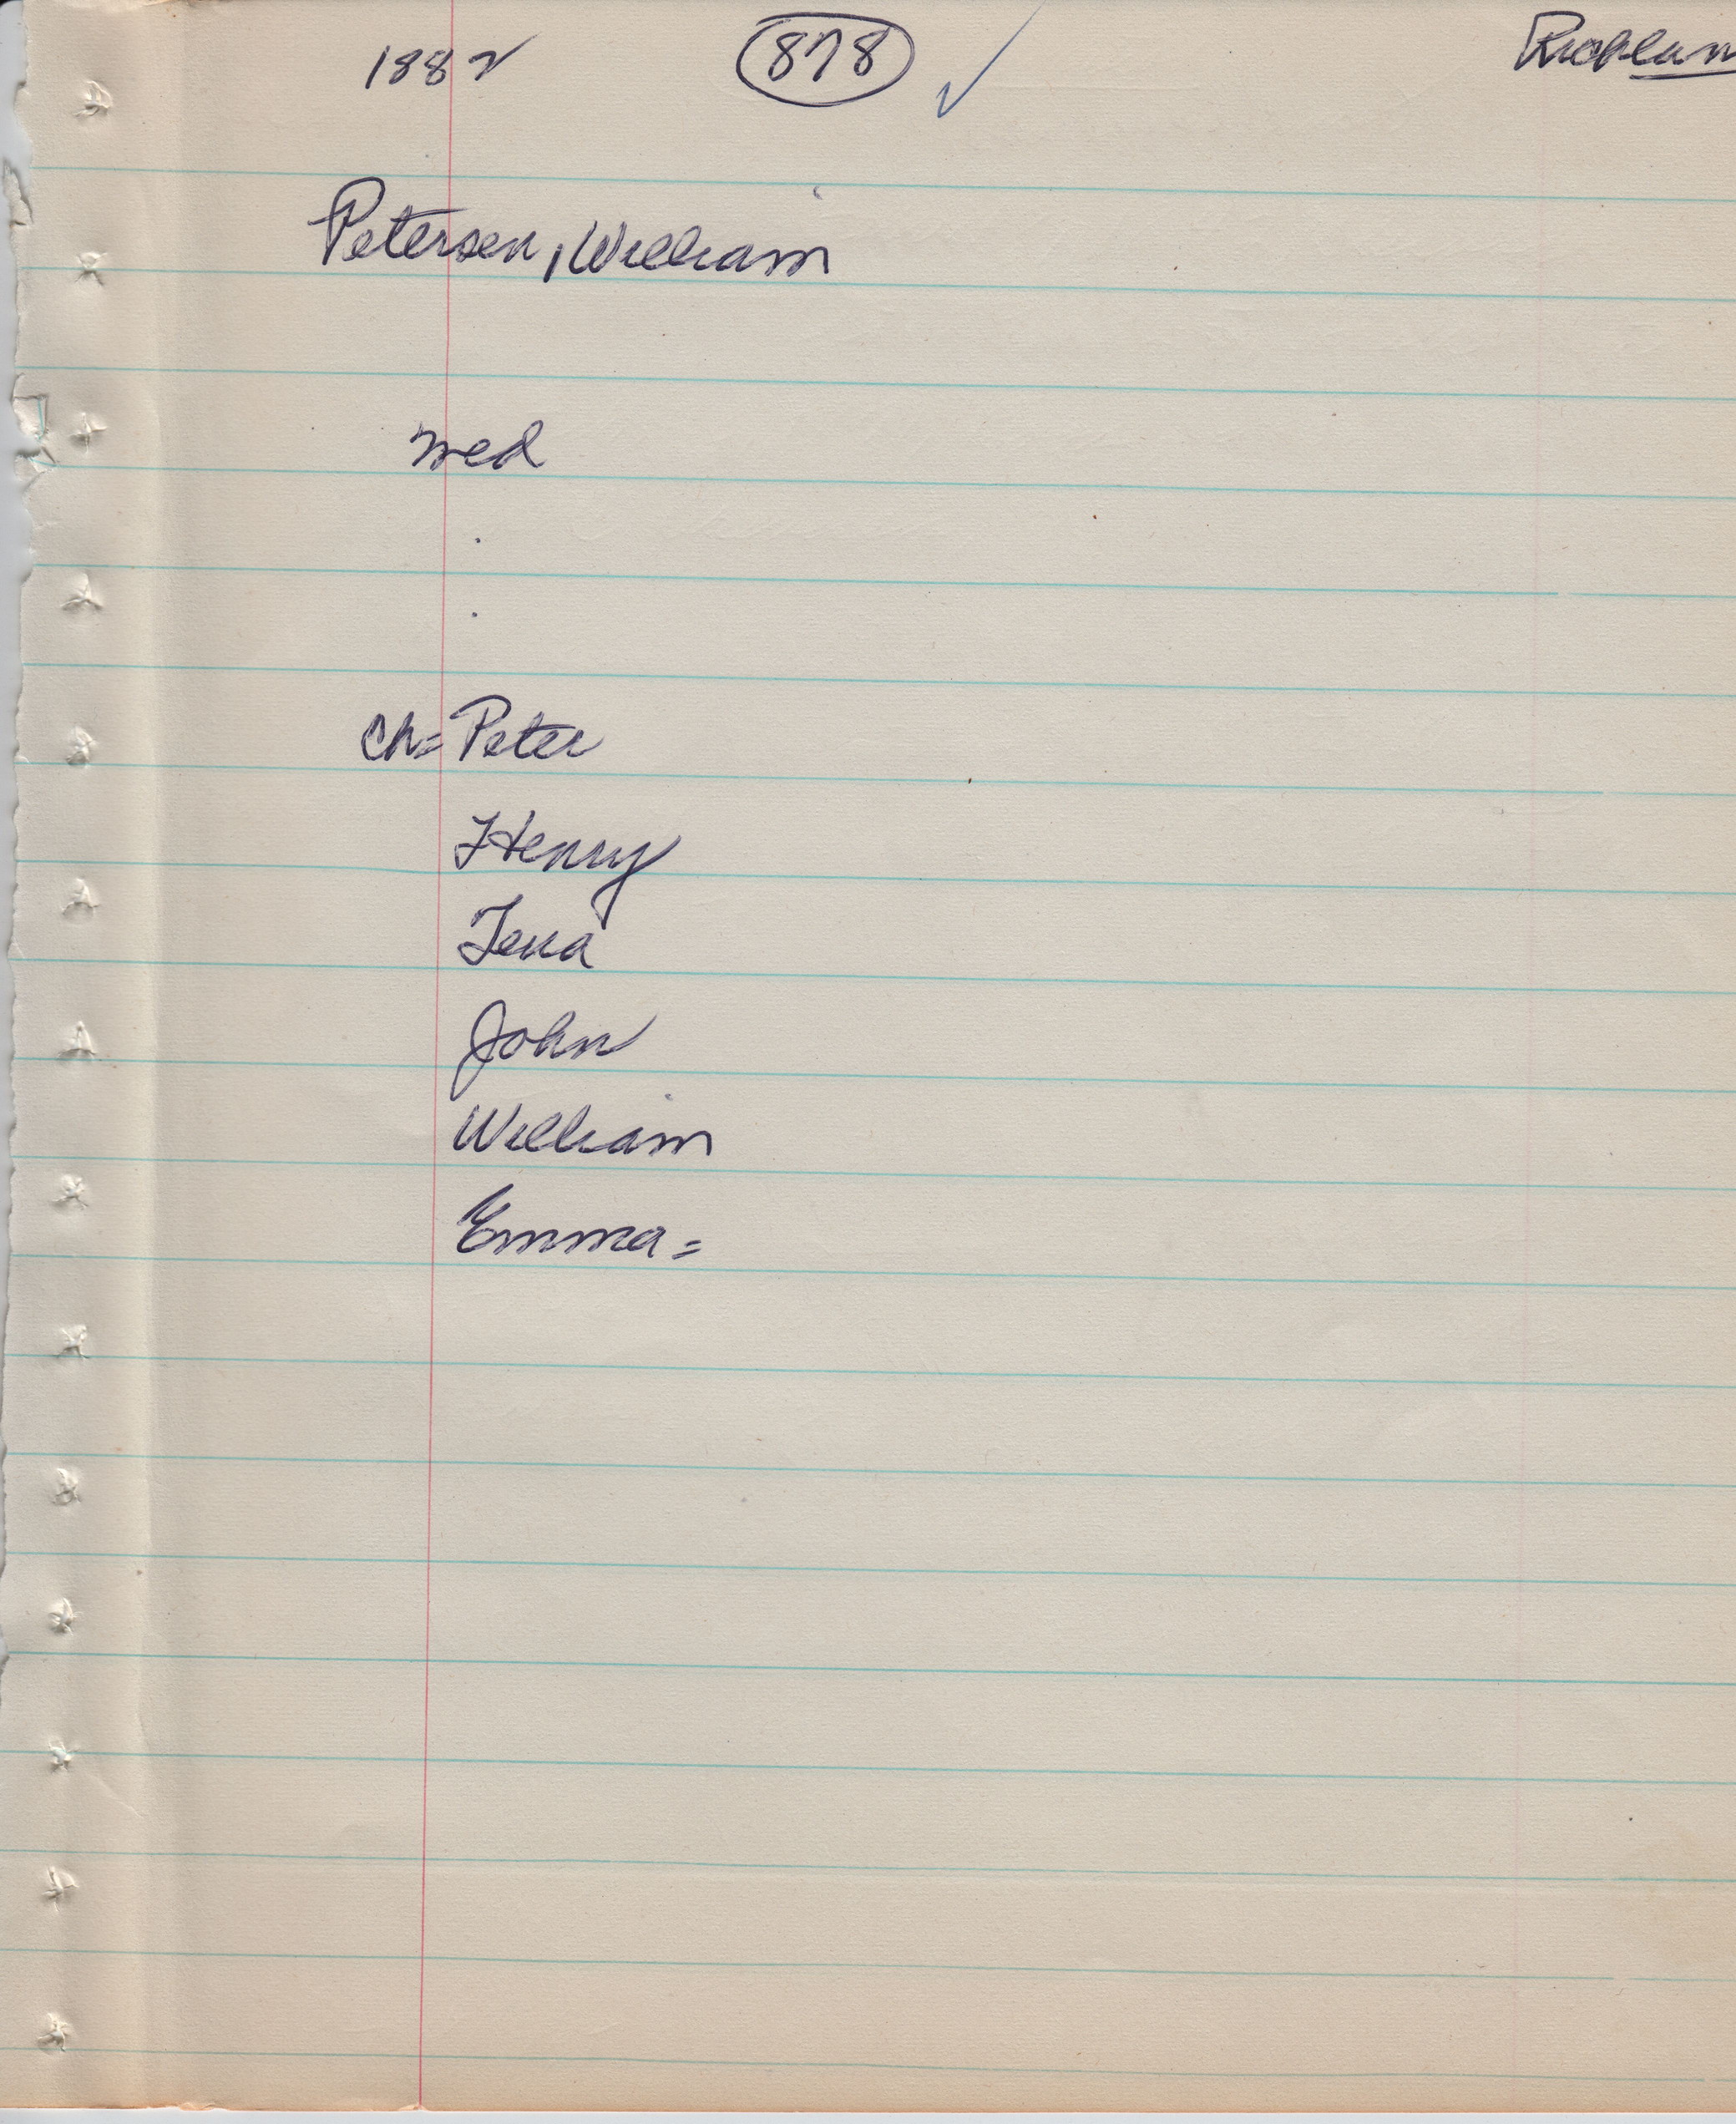 1882 878 ✓ Richlan
Petersen, William
med
ch= Peter
Henry
Tena
John
William
Emma=